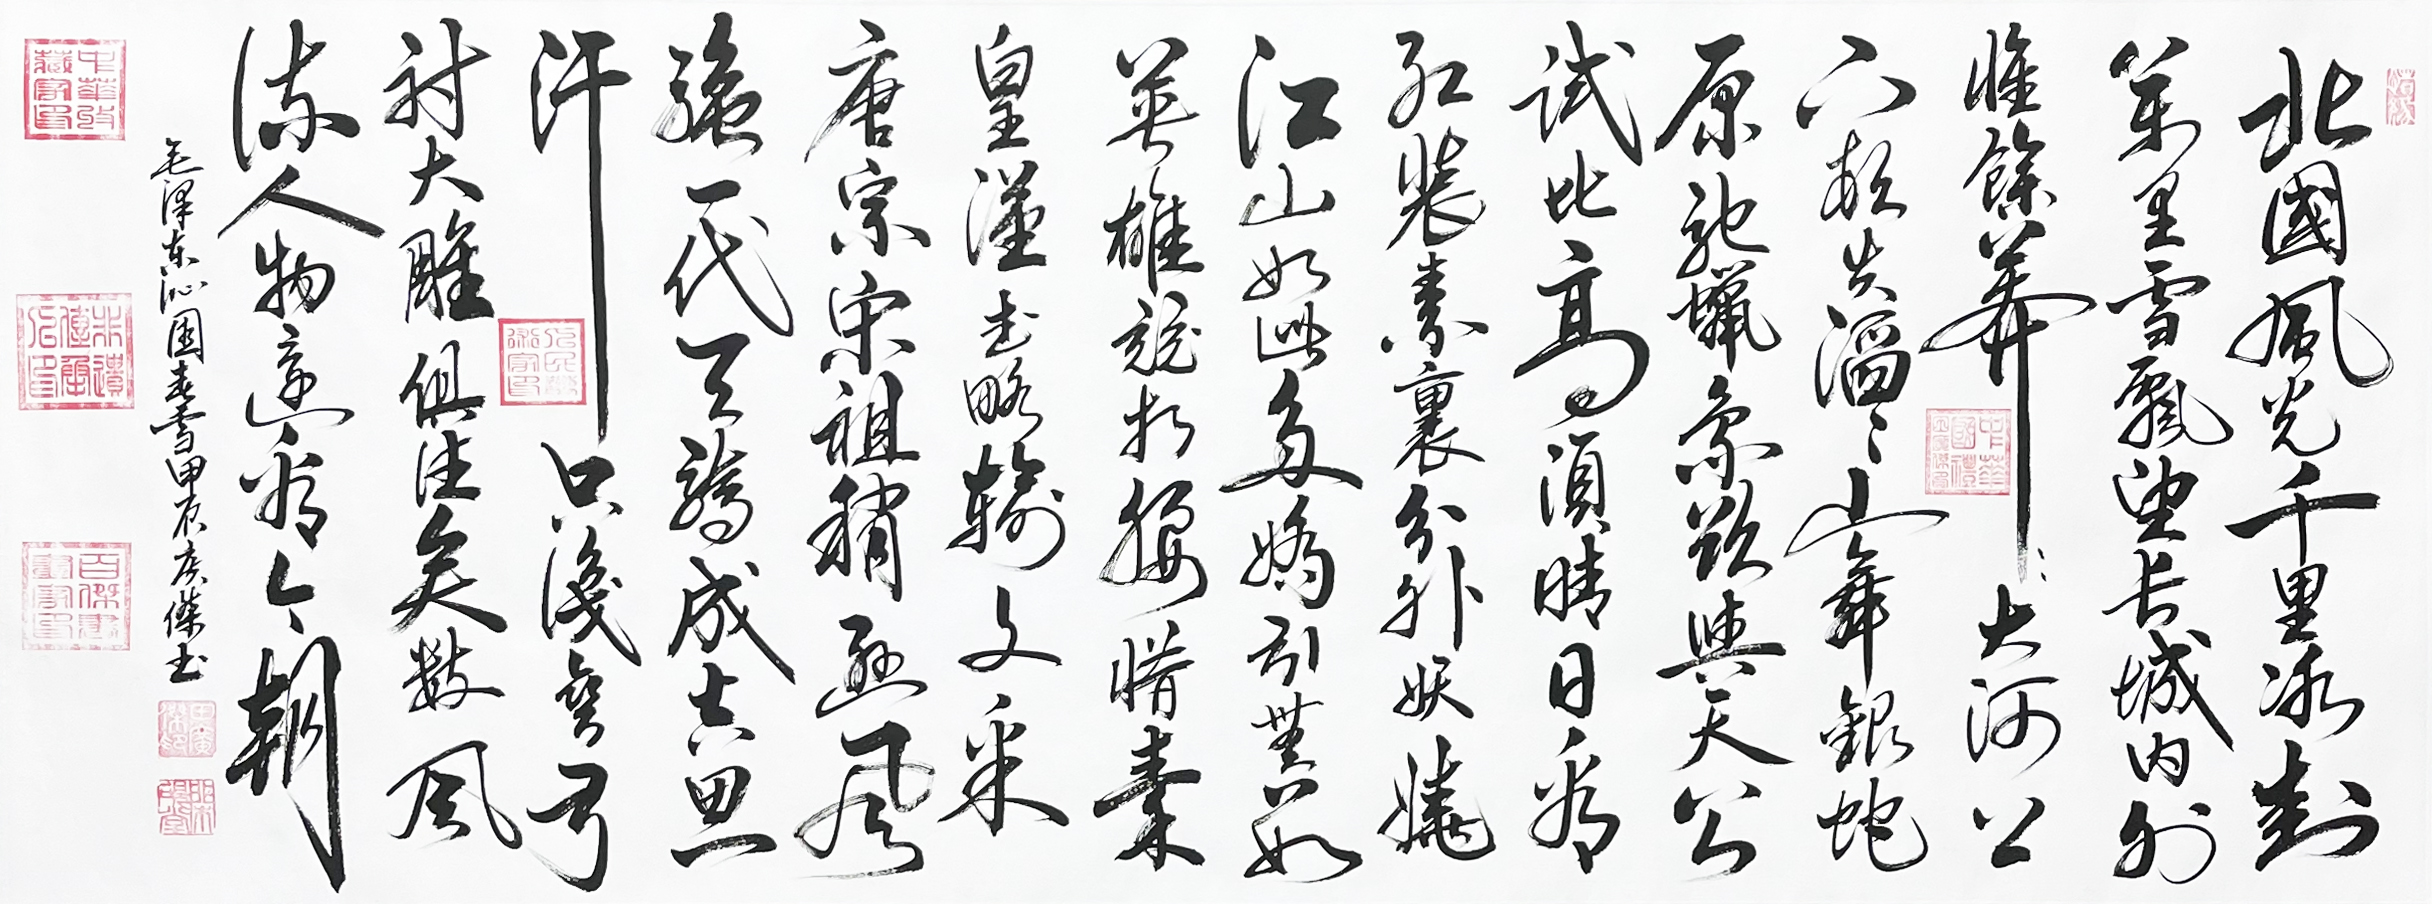 北國風光千里冰封
萬里雪飄望长城内外
惟餘莽〻大河上
下頓失滔〻山舞銀蛇
原驰蠟象欲與天公
試比高須晴日看
红装素裹分外妖嬈
江山如此多嬌引無数
英雄競折腰惜秦
皇漢武略輸文采
唐宗宋祖稍遜風
骚一代天驕成吉思
汗只識彎弓
射大雕俱往矣數風
流人物還看今朝
毛泽东沁園春雪甲辰庆傑书